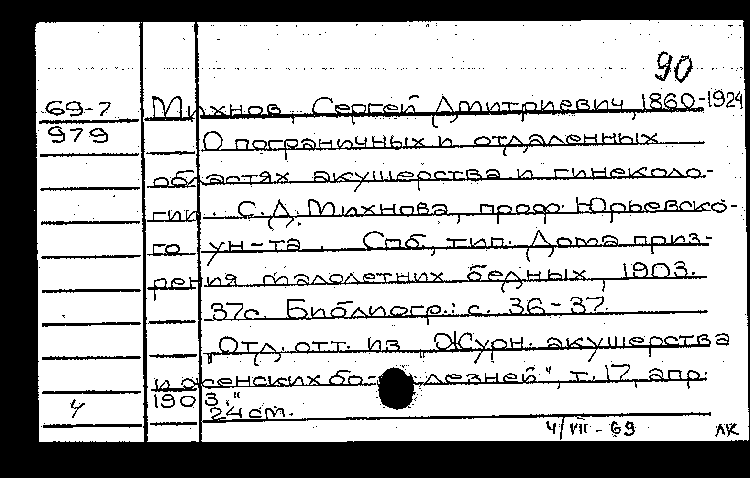 90
69-7 Михнов, Сергей Дмитриевич, 1860-1924
979 О пограничных и отдаленных
областях акушерства и гинеколо-
гии. С.Д. Михнова, проф. Юрьевско-
го ун-та. Спб, тип. Дома приз-
рения малолетних бедных, 1903.
37с. Библиогр.: с. 36-37.
"Отд. отт. из "Журн. акушерства
и женских бо- лезней", т. 17, апр.
1903."
24 см.
4/VII-69 ЛК